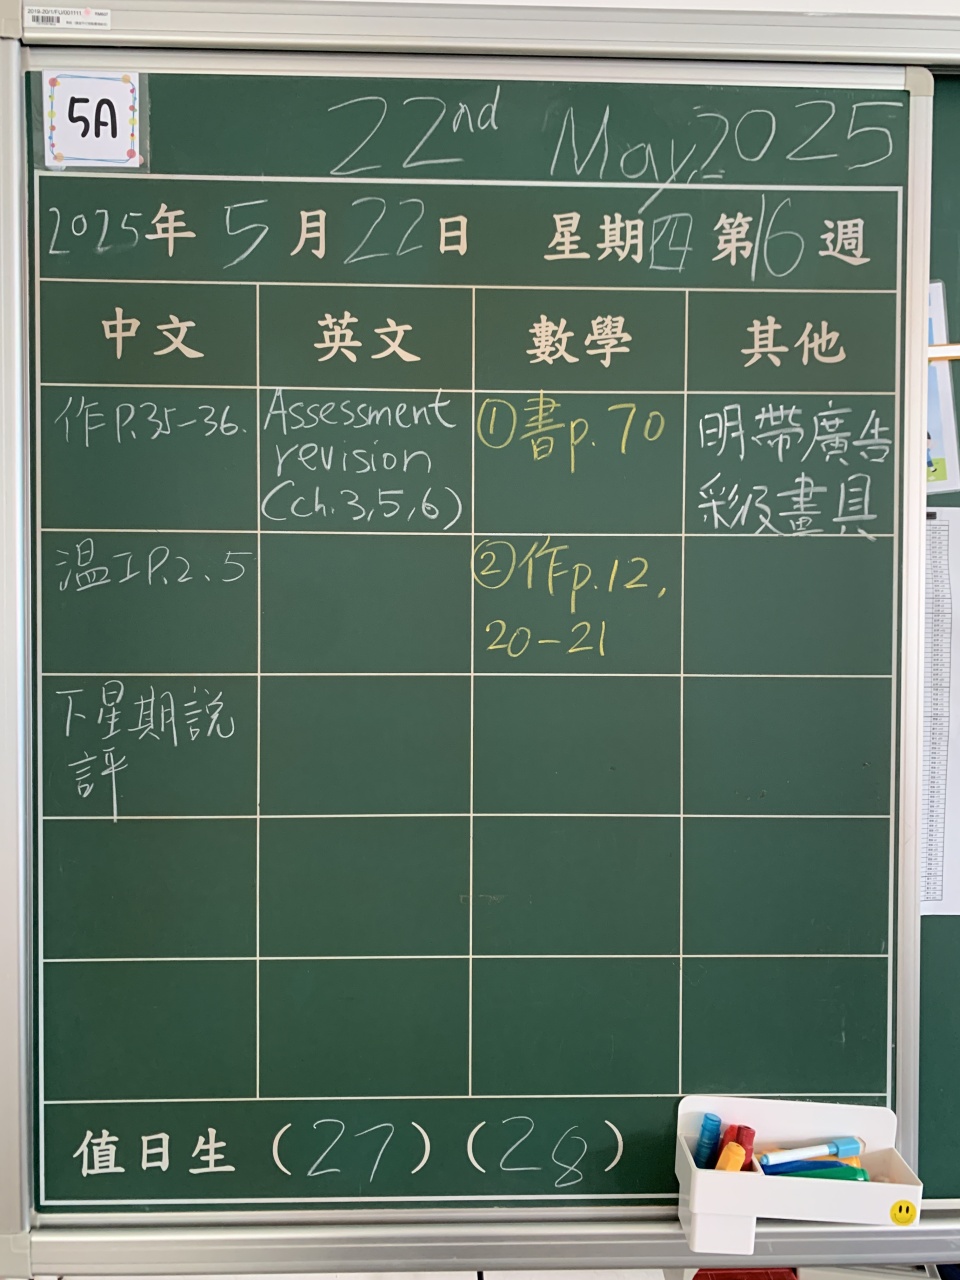 5A
22nd May, 2025
2025年5月22日 星期四 第16週
中文 英文 數學 其他
作P.35-36.
Assessment
revision
(ch.3,5,6)
①書p.70
明帶廣告
彩及畫具
溫工P.2、5
②作p.12,
20-21
下星期說
評
值日生 (27) (28)